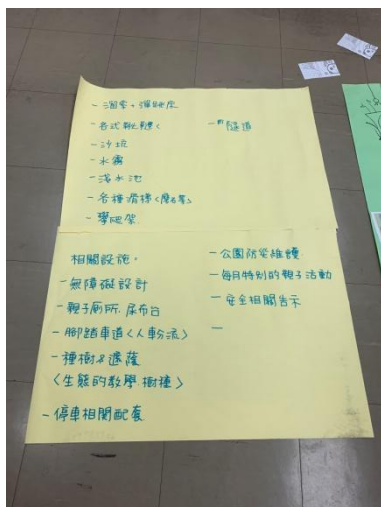 - 溜索+彈跳床
- 各式鞦韆
- 沙坑
- 水霧
- 淺水池
- 各種滑梯(磨石子)
- 攀爬架
- 隧道
相關設施。
- 無障礙設計
- 親子廁所.尿布台
- 腳踏車道<人車分流>
- 種樹&遮蔭
<生態的教學 樹種>
- 停車相關配套
- 公園防災維護
- 每月特別的親子活動
- 安全相關告示
-